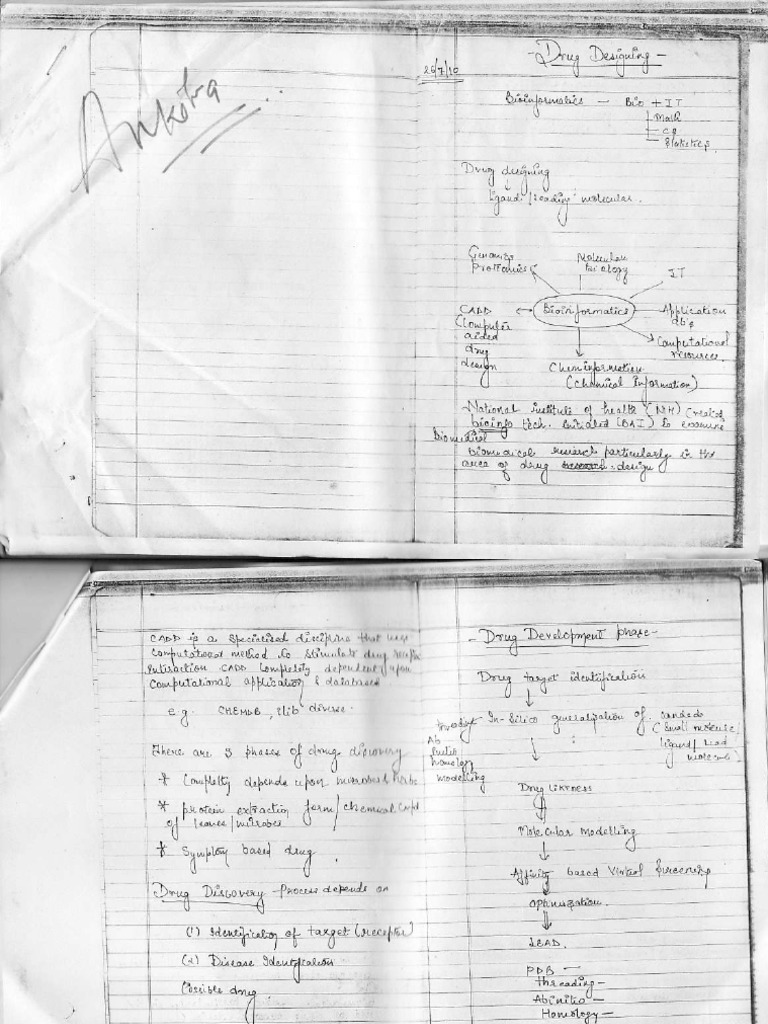 Ankita
26/7/10
- Drug Designing -
Bioinformatics - Bio + IT
Math
CS
Statistics
Drug designing
ligand / leading molecular.
Genomics
Proteomics
Molecular
biology
IT
CADD
Computer
aided
drug
design
Bioinformatics
Application
Computational
resources
Cheminformation
(Chemical Information)
National institute of health (NIH) created
bioinfo tech. initiated to examine
Biomedical
Biomedical research particularly in the
area of drug design
CADD is a specialised discipline that uses
computational method to stimulate drug
interaction CADD completely dependent upon
computational application & databases
e.g. CHEMDB, diverse.
There are 3 phases of drug discovery
* Completely depends upon
* protein extraction form/chemical
of leaves/microbes
* Symptom based drug.
Drug Discovery - Process depends on
(1) Identification of target (receptor)
(2) Disease Identification
Possible drug
- Drug Development phase -
Drug target identification
In-Silico generalisation of
(Small molecule/
ligand/lead
molecule)
Ab
initio
homology
modelling
Drug likeness
Molecular Modelling
Affinity based Virtual Screening
Optimization.
LEAD.
PDB -
threading -
Abinitio -
Homology -